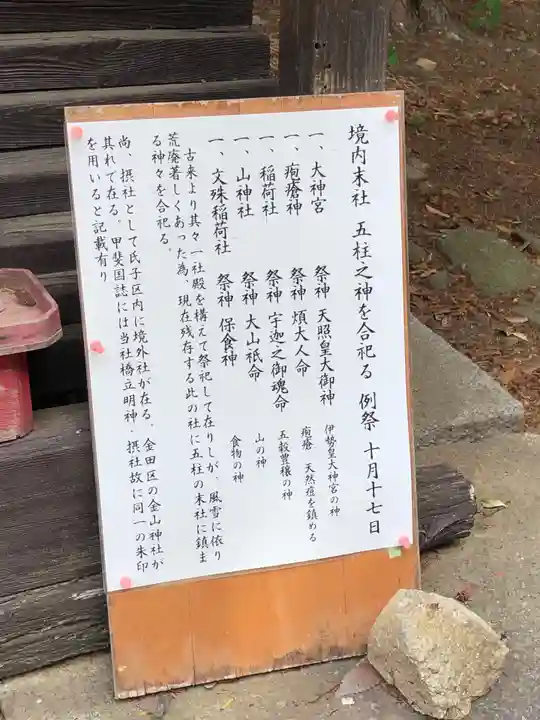 境内末社 五柱之神を合祀る 例祭 十月十七日
一、大神宮 祭神 天照皇大御神 伊勢皇大神宮の神
一、疱瘡神 祭神 煩大人命 疱瘡 天然痘を鎮める
一、稲荷社 祭神 宇迦之御魂命 五穀豊穣の神
一、山神社 祭神 大山祇命 山の神
一、文殊稲荷社 祭神 保食神 食物の神
古来より其々一社殿を構えて祭祀して在りしが、風雪に依り
荒廃著しくあった為、現在残存する此の社に五柱の末社に鎮ま
る神々を合祀る。
尚、摂社として氏子区内に境外社が在る。金田区の金山神社が
其れで在る。甲斐国誌には当社橋立明神・摂社故に同一の朱印
を用いると記載有り